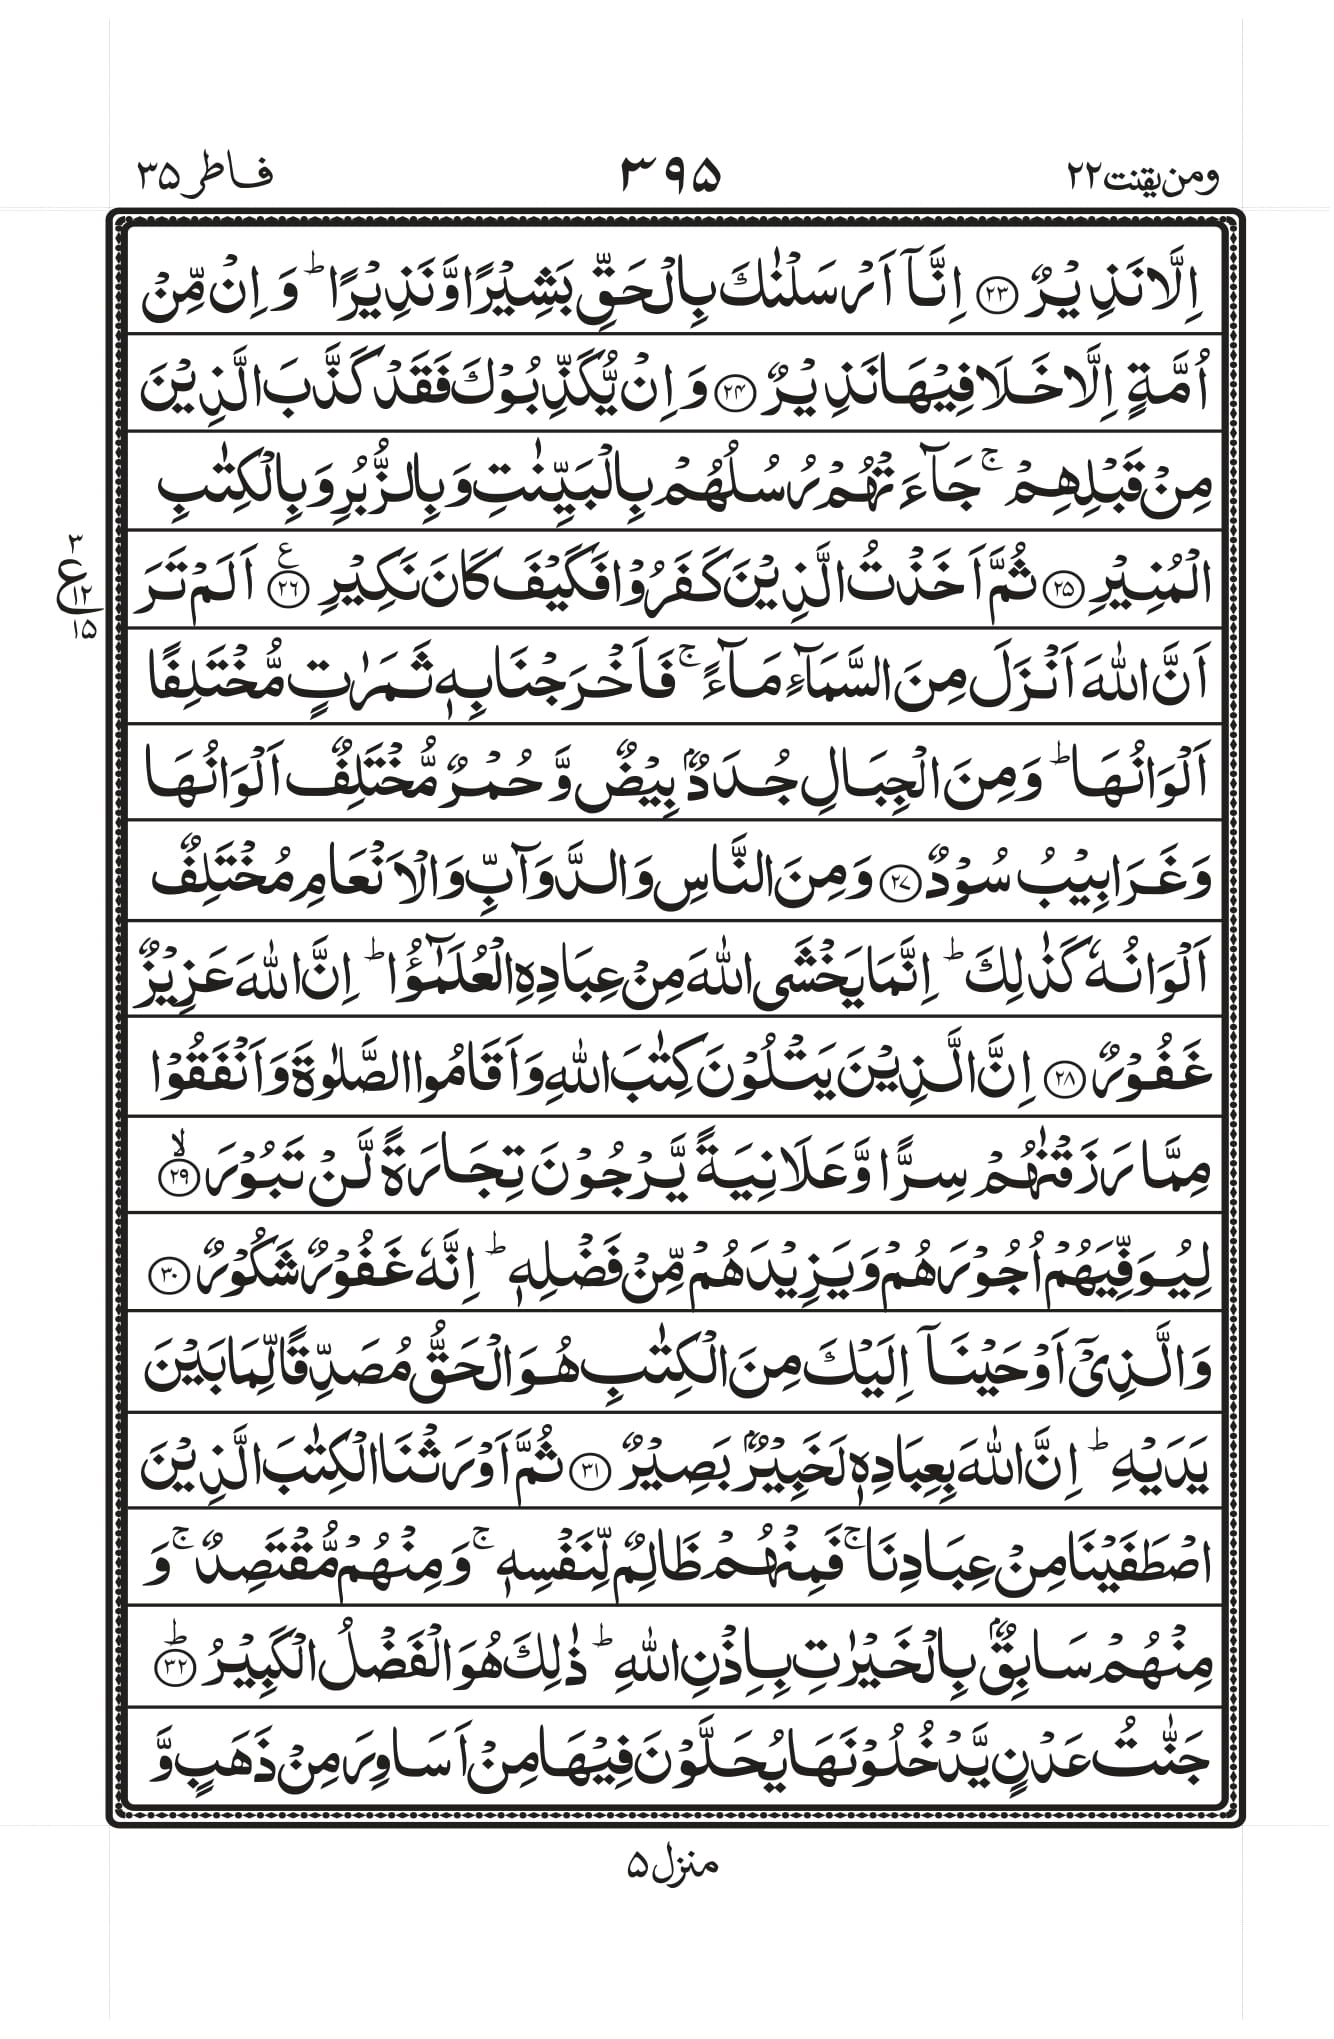 ومن يقنت ٢٢ ٣٩٥ فاطر ٣٥
اِلَّا نَذِيْرٌ ﴿٢٣﴾ اِنَّاۤ اَرْسَلْنٰكَ بِالْحَقِّ بَشِيْرًا وَّ نَذِيْرًا ؕ وَ اِنْ مِّنْ
اُمَّةٍ اِلَّا خَلَا فِيْهَا نَذِيْرٌ ﴿٢٤﴾ وَ اِنْ يُّكَذِّبُوْكَ فَقَدْ كَذَّبَ الَّذِيْنَ
مِنْ قَبْلِهِمْ ۚ جَآءَتْهُمْ رُسُلُهُمْ بِالْبَيِّنٰتِ وَ بِالزُّبُرِ وَ بِالْكِتٰبِ
الْمُنِيْرِ ﴿٢٥﴾ ثُمَّ اَخَذْتُ الَّذِيْنَ كَفَرُوْا فَكَيْفَ كَانَ نَكِيْرِ ﴿٢٦﴾ ع اَلَمْ تَرَ
٣ ع ١٢ ١٥
اَنَّ اللّٰهَ اَنْزَلَ مِنَ السَّمَآءِ مَآءً ۚ فَاَخْرَجْنَا بِهٖ ثَمَرٰتٍ مُّخْتَلِفًا
اَلْوَانُهَا ؕ وَ مِنَ الْجِبَالِ جُدَدٌۢ بِيْضٌ وَّ حُمْرٌ مُّخْتَلِفٌ اَلْوَانُهَا
وَ غَرَابِيْبُ سُوْدٌ ﴿٢٧﴾ وَ مِنَ النَّاسِ وَ الدَّوَآبِّ وَ الْاَنْعَامِ مُخْتَلِفٌ
اَلْوَانُهٗ كَذٰلِكَ ؕ اِنَّمَا يَخْشَى اللّٰهَ مِنْ عِبَادِهِ الْعُلَمٰٓؤُا ؕ اِنَّ اللّٰهَ عَزِيْزٌ
غَفُوْرٌ ﴿٢٨﴾ اِنَّ الَّذِيْنَ يَتْلُوْنَ كِتٰبَ اللّٰهِ وَ اَقَامُوا الصَّلٰوةَ وَ اَنْفَقُوْا
مِمَّا رَزَقْنٰهُمْ سِرًّا وَّ عَلَانِيَةً يَّرْجُوْنَ تِجَارَةً لَّنْ تَبُوْرَ ﴿٢٩﴾ ۙ
لِيُوَفِّيَهُمْ اُجُوْرَهُمْ وَ يَزِيْدَهُمْ مِّنْ فَضْلِهٖ ؕ اِنَّهٗ غَفُوْرٌ شَكُوْرٌ ﴿٣٠﴾
وَ الَّذِيْۤ اَوْحَيْنَاۤ اِلَيْكَ مِنَ الْكِتٰبِ هُوَ الْحَقُّ مُصَدِّقًا لِّمَا بَيْنَ
يَدَيْهِ ؕ اِنَّ اللّٰهَ بِعِبَادِهٖ لَخَبِيْرٌۢ بَصِيْرٌ ﴿٣١﴾ ثُمَّ اَوْرَثْنَا الْكِتٰبَ الَّذِيْنَ
اصْطَفَيْنَا مِنْ عِبَادِنَا ۚ فَمِنْهُمْ ظَالِمٌ لِّنَفْسِهٖ ۚ وَ مِنْهُمْ مُّقْتَصِدٌ ۚ وَ
مِنْهُمْ سَابِقٌۢ بِالْخَيْرٰتِ بِاِذْنِ اللّٰهِ ؕ ذٰلِكَ هُوَ الْفَضْلُ الْكَبِيْرُ ﴿٣٢﴾ ؕ
جَنّٰتُ عَدْنٍ يَّدْخُلُوْنَهَا يُحَلَّوْنَ فِيْهَا مِنْ اَسَاوِرَ مِنْ ذَهَبٍ وَّ
منزل ٥